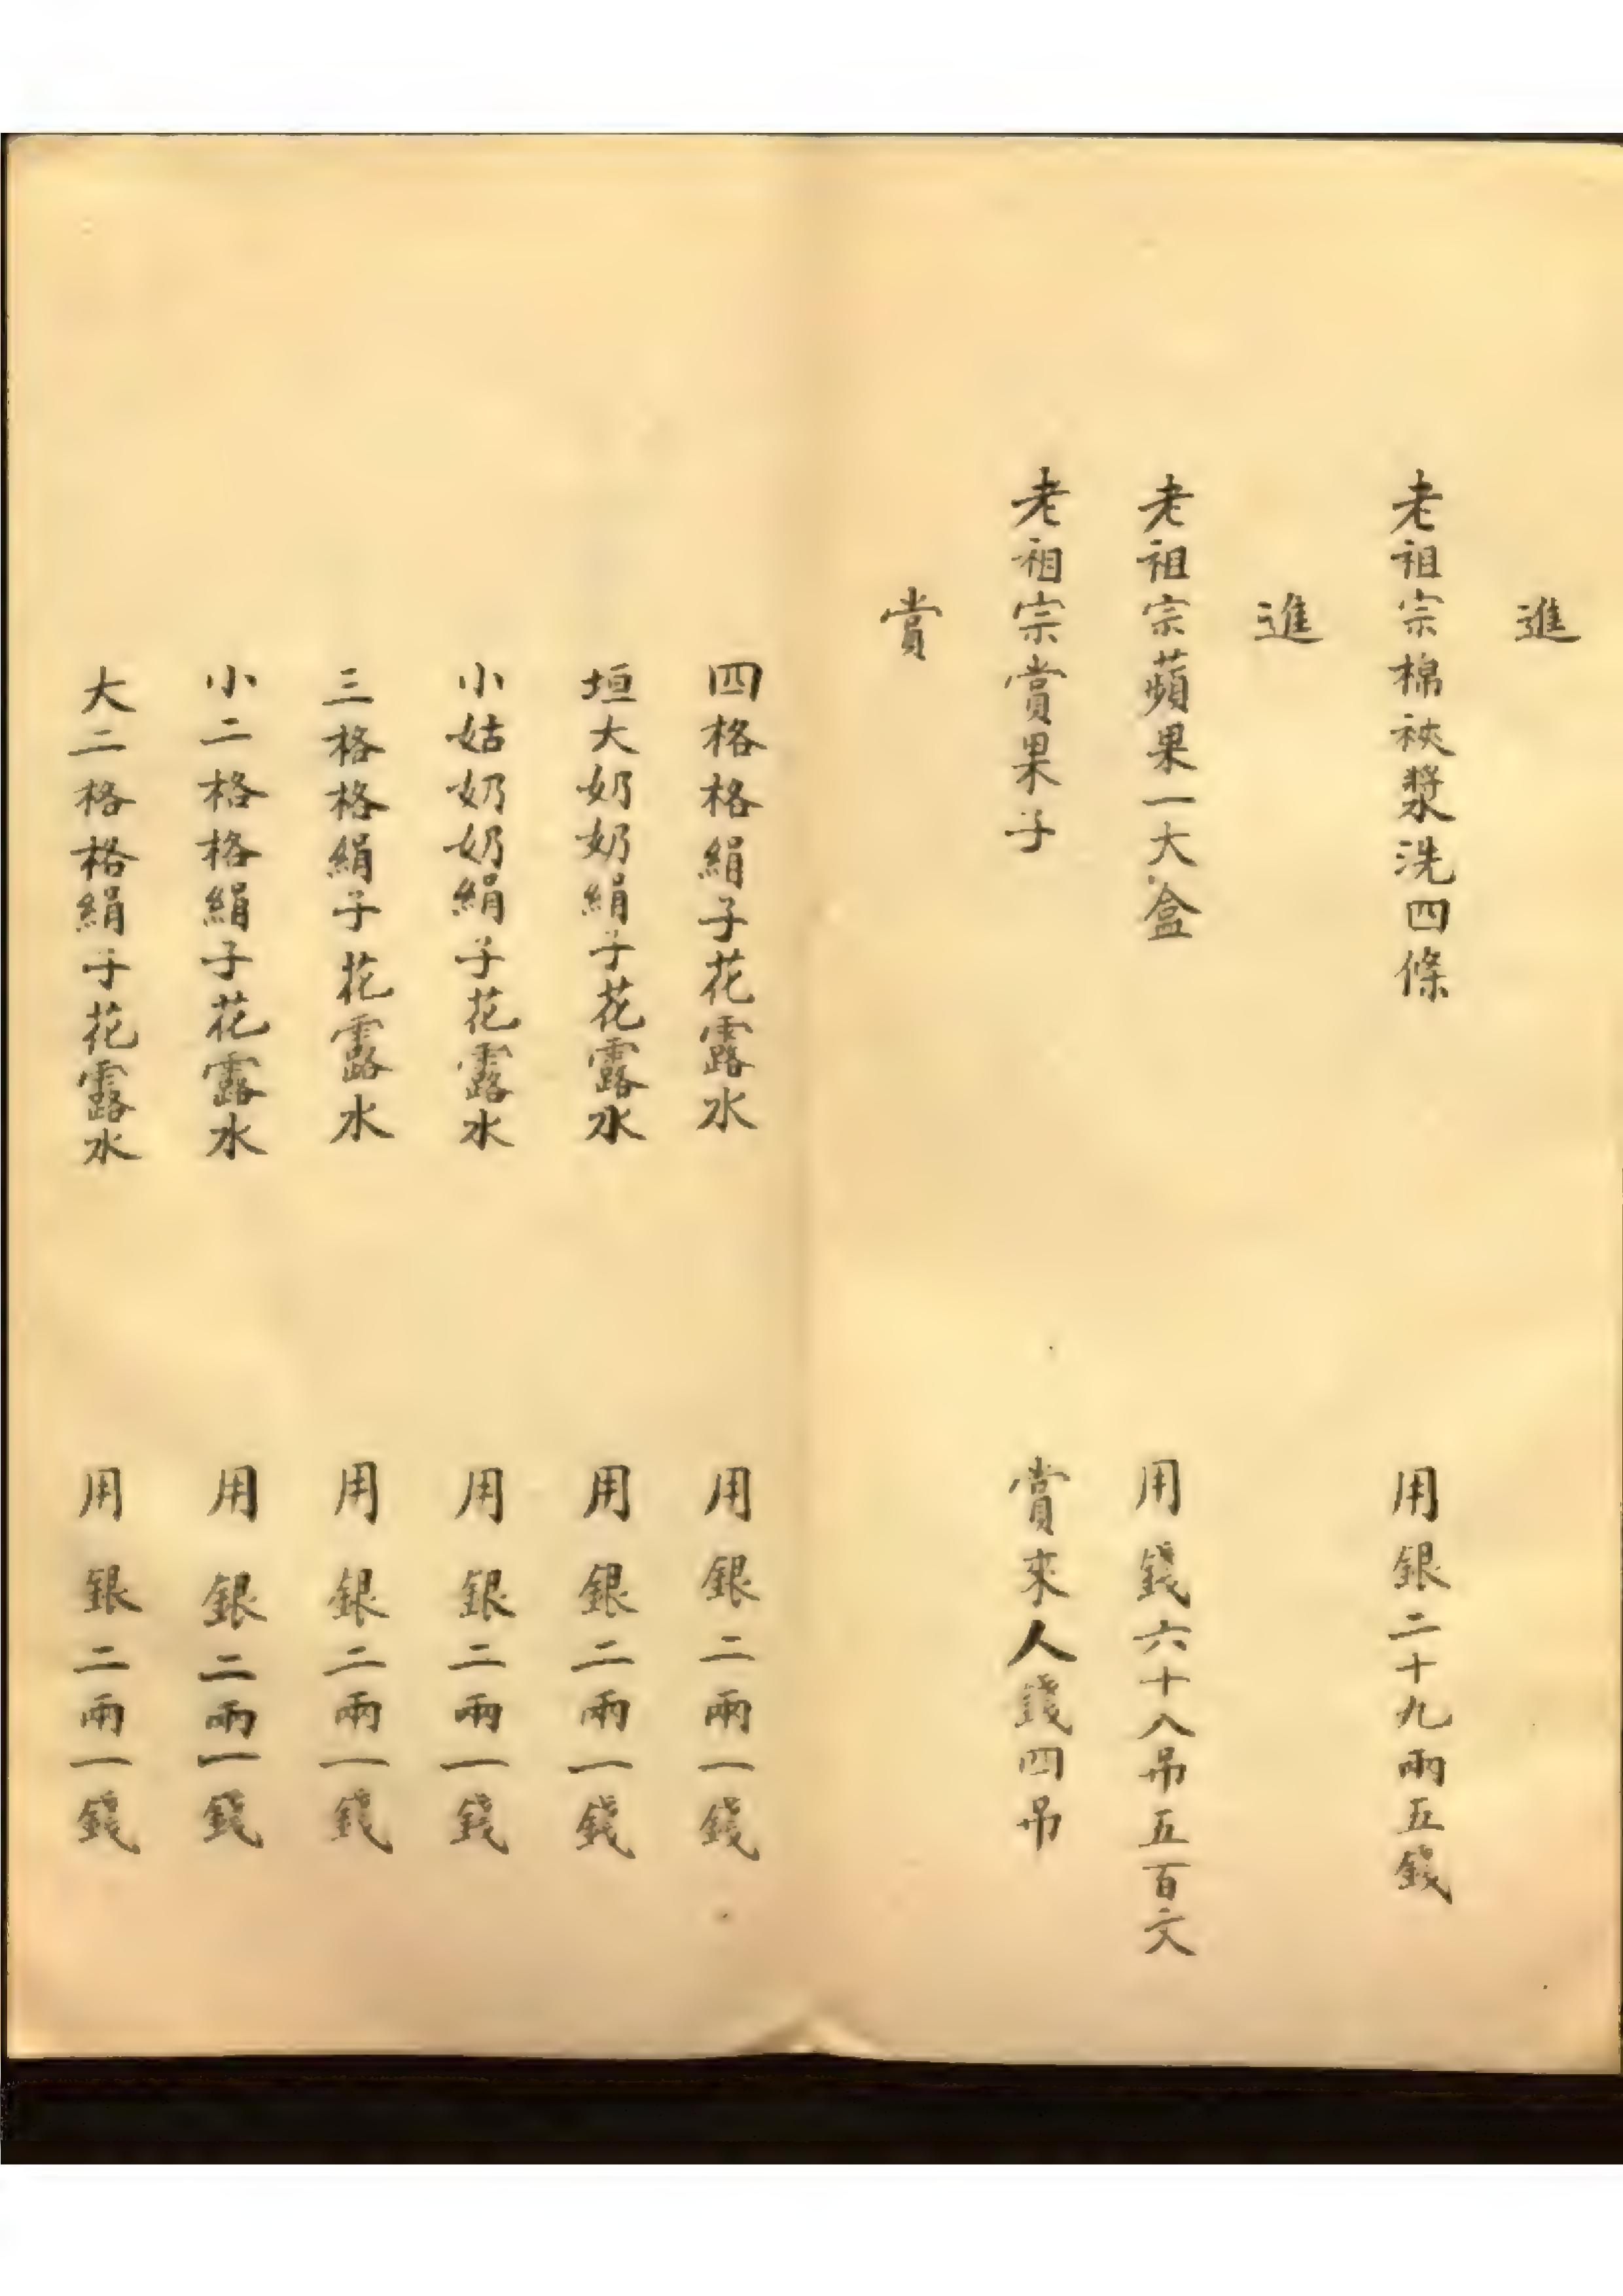 進
老祖宗棉袂漿洗四條 用銀二十九兩五錢
進
老祖宗蘋果一大盒 用錢六十八吊五百文
老祖宗賞果子 賞來人錢四吊
賞
四格格絹子花露水 用銀二兩一錢
垣大奶奶絹子花露水 用銀二兩一錢
小姑奶奶絹子花露水 用銀二兩一錢
三格格絹子花露水 用銀二兩一錢
小二格格絹子花露水 用銀二兩一錢
大二格格絹子花露水 用銀二兩一錢